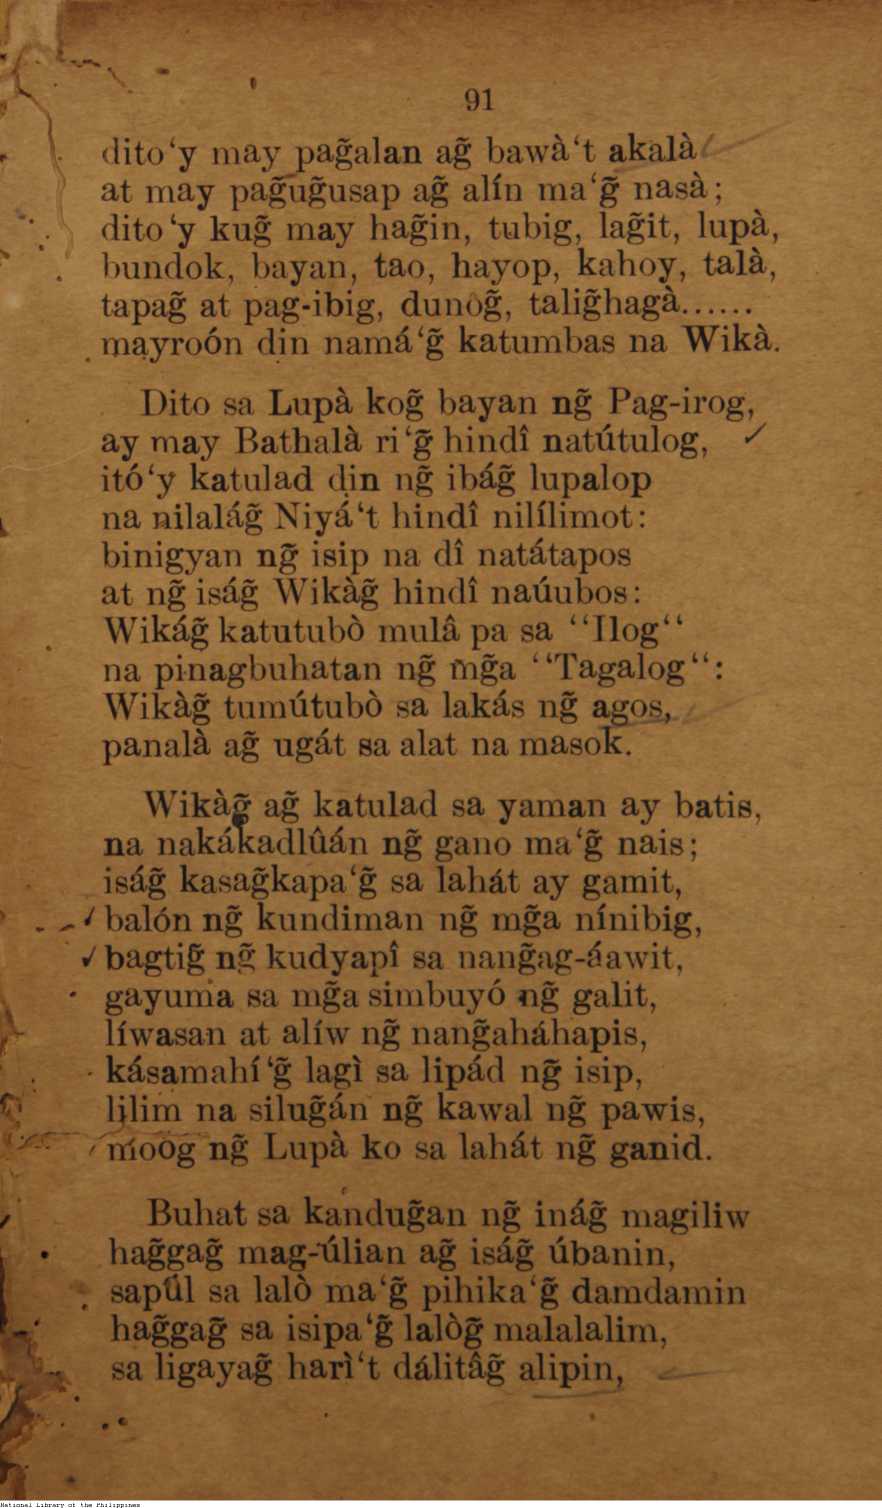 91
dito‘y may pag̃alan ag̃ bawà‘t akalà
at may pag̃ug̃usap ag̃ alín ma‘g̃ nasà;
dito‘y kug̃ may hag̃in, tubig, lag̃it, lupà,
bundok, bayan, tao, hayop, kahoy, talà,
tapag̃ at pag-ibig, dunog̃, talig̃hagà......
mayroón din namá‘g̃ katumbas na Wikà.
Dito sa Lupà kog̃ bayan ng̃ Pag-irog,
ay may Bathalà ri‘g̃ hindî natútulog,
itó‘y katulad din ng̃ ibág̃ lupalop
na nilalág̃ Niyá‘t hindî nilílimot:
binigyan ng̃ isip na dî natátapos
at ng̃ iság̃ Wikàg̃ hindî naúubos:
Wikág̃ katutubò mulâ pa sa ‘‘Ilog‘‘
na pinagbuhatan ng̃ mg̃a ‘‘Tagalog‘‘:
Wikàg̃ tumútubò sa lakás ng̃ agos,
panalà ag̃ ugát sa alat na masok.
Wikàg̃ ag̃ katulad sa yaman ay batis,
na nakákadlûán ng̃ gano ma‘g̃ nais;
iság̃ kasag̃kapa‘g̃ sa lahát ay gamit,
balón ng̃ kundiman ng̃ mg̃a nínibig,
bagtig̃ ng̃ kudyapî sa nang̃ag-áawit,
gayuma sa mg̃a simbuyó ng̃ galit,
líwasan at alíw ng̃ nang̃aháhapis,
kásamahí‘g̃ lagì sa lipád ng̃ isip,
lilim na silug̃án ng̃ kawal ng̃ pawis,
moog ng̃ Lupà ko sa lahát ng̃ ganid.
Buhat sa kandug̃an ng̃ inág̃ magiliw
hag̃gag̃ mag-úlian ag̃ iság̃ úbanin,
sapûl sa lalò ma‘g̃ pihika‘g̃ damdamin
hag̃gag̃ sa isipa‘g̃ lalòg̃ malalalim,
sa ligayag̃ harì‘t dálitâg̃ alipin,
National Library of the Philippines